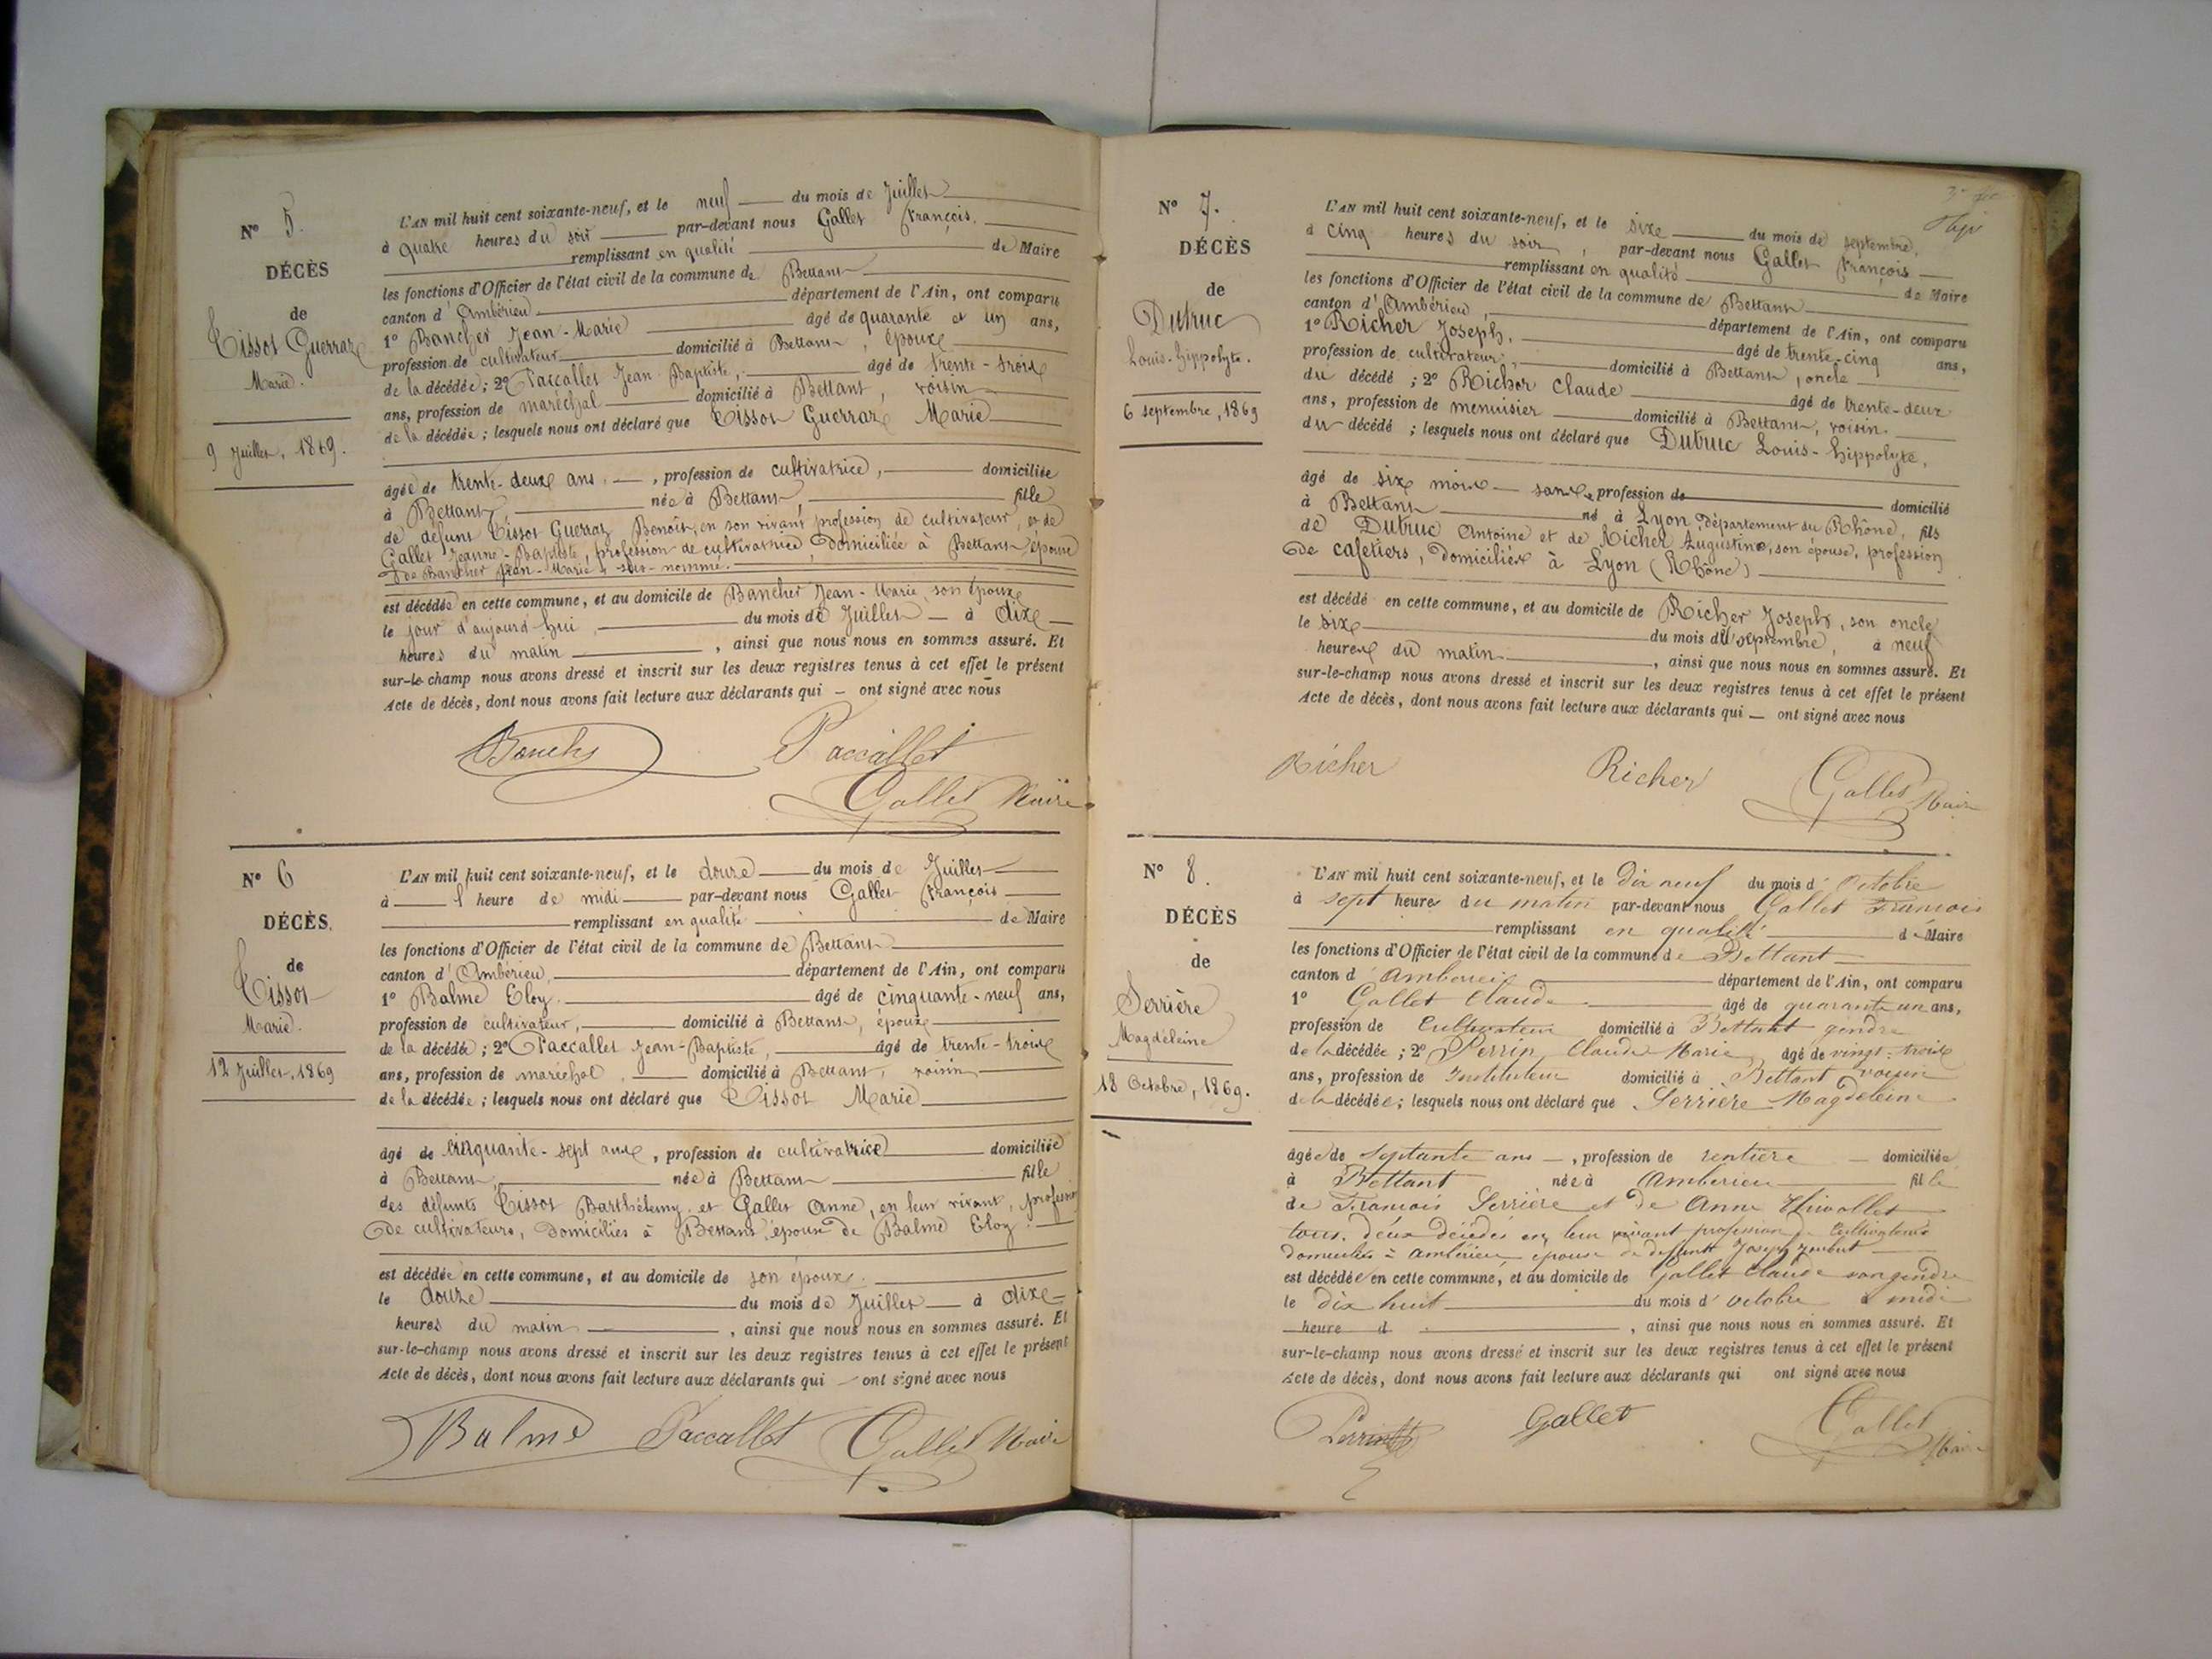 N° 5.
DÉCÈS
de
Tissot Guerraz
Marie.
9 Juillet, 1869.
L'AN mil huit cent soixante-neuf, et le neuf du mois de Juillet
à quatre heures du soir par-devant nous Gallet François.
remplissant en qualité de Maire
les fonctions d'Officier de l'état civil de la commune de Bettant
canton d'Ambérieu département de l'Ain, ont comparu
1° Bancher Jean-Marie âgé de quarante et un ans,
profession de cultivateur domicilié à Bettant, époux
de la décédée; 2° Paccallet Jean Baptiste, âgé de trente-trois
ans, profession de maréchal domicilié à Bettant, voisin
de la décédée; lesquels nous ont déclaré que Tissot Guerraz Marie
âgée de trente-deux ans, profession de cultivatrice, domiciliée
à Bettant, née à Bettant, fille
de défunt Tissot Guerraz Benoit, en son vivant profession de cultivateur, et de
Gallet Jeanne-Baptiste, profession de cultivatrice, domiciliée à Bettant, épouse
de Bancher Jean-Marie, sus-nommé.
est décédée en cette commune, et au domicile de Bancher Jean-Marie, son époux
le jour d'aujourd'hui du mois de Juillet à dix
heures du matin, ainsi que nous nous en sommes assuré. Et
sur-le-champ nous avons dressé et inscrit sur les deux registres tenus à cet effet le présent
Acte de décès, dont nous avons fait lecture aux déclarants qui — ont signé avec nous
Paccallet
Gallet Maire
N° 6
DÉCÈS.
de
Tissot
Marie.
12 Juillet, 1869
L'AN mil huit cent soixante-neuf, et le douze du mois de Juillet
à 1 heure de midi par-devant nous Gallet François
remplissant en qualité de Maire
les fonctions d'Officier de l'état civil de la commune de Bettant
canton d'Ambérieu, département de l'Ain, ont comparu
1° Balme Eloy. âgé de cinquante-neuf ans,
profession de cultivateur, domicilié à Bettant, époux
de la décédée; 2° Paccallet Jean-Baptiste, âgé de trente-trois
ans, profession de maréchal, domicilié à Bettant, voisin
de la décédée; lesquels nous ont déclaré que Tissot Marie
âgé de cinquante-sept ans, profession de cultivatrice domiciliée
à Bettant, née à Bettant fille
des défunts Tissot Barthélemy et Gallet Anne, en leur vivant, profession
de cultivateurs, domiciliés à Bettant, épouse de Balme Eloy.
est décédée en cette commune, et au domicile de son époux.
le douze du mois de Juillet à dix
heures du matin, ainsi que nous nous en sommes assuré. Et
sur-le-champ nous avons dressé et inscrit sur les deux registres tenus à cet effet le présent
Acte de décès, dont nous avons fait lecture aux déclarants qui — ont signé avec nous
Balme Paccallet Gallet Maire
N° 7.
DÉCÈS
de
Dutruc
Louis-hippolyte.
6 septembre, 1869
L'AN mil huit cent soixante-neuf, et le six du mois de septembre,
à cinq heures du soir, par-devant nous Gallet François
remplissant en qualité de Maire
les fonctions d'Officier de l'état civil de la commune de Bettant
canton d'Ambérieu, département de l'Ain, ont comparu
1° Richer Joseph, âgé de trente-cinq ans,
profession de cultivateur, domicilié à Bettant, oncle
du décédé; 2° Richer Claude âgé de trente-deux
ans, profession de menuisier domicilié à Bettant, voisin.
du décédé; lesquels nous ont déclaré que Dutruc Louis-hippolyte,
âgé de six mois — sans profession de domicilié
à Bettant né à Lyon département du Rhône, fils
de Dutruc Antoine et de Richer Augustine, son épouse, profession
de cafetiers, domiciliés à Lyon (Rhône)
est décédé en cette commune, et au domicile de Richer Joseph, son oncle
le six du mois de septembre, à neuf
heures du matin, ainsi que nous nous en sommes assuré. Et
sur-le-champ nous avons dressé et inscrit sur les deux registres tenus à cet effet le présent
Acte de décès, dont nous avons fait lecture aux déclarants qui — ont signé avec nous
Richer Richer Gallet Maire
N° 8.
DÉCÈS
de
Serrière
Magdeleine
18 Octobre, 1869.
L'AN mil huit cent soixante-neuf, et le Dix neuf du mois d'Octobre
à sept heures du matin par-devant nous Gallet François
remplissant en qualité de Maire
les fonctions d'Officier de l'état civil de la commune de Bettant
canton d' département de l'Ain, ont comparu
1° Gallet Claude âgé de quarante un ans,
profession de Cultivateur domicilié à Bettant gendre
de la décédée; 2° Perrin Claude Marie âgé de vingt-trois
ans, profession de Instituteur domicilié à Bettant voisin
de la décédée; lesquels nous ont déclaré que Serrière Magdeleine
âgée de Septante ans —, profession de rentière domiciliée
à Bettant née à Amberieu fille
de François Serrière et de Anne
tous deux décédés en leur vivant profession de Cultivateurs
domiciliés à Ambérieu épouse de deffunt Joseph
est décédée en cette commune, et au domicile de Gallet Claude son gendre
le dix huit du mois d'octobre à midi
heure d, ainsi que nous nous en sommes assuré. Et
sur-le-champ nous avons dressé et inscrit sur les deux registres tenus à cet effet le présent
Acte de décès, dont nous avons fait lecture aux déclarants qui ont signé avec nous
Perrin Gallet Gallet Maire